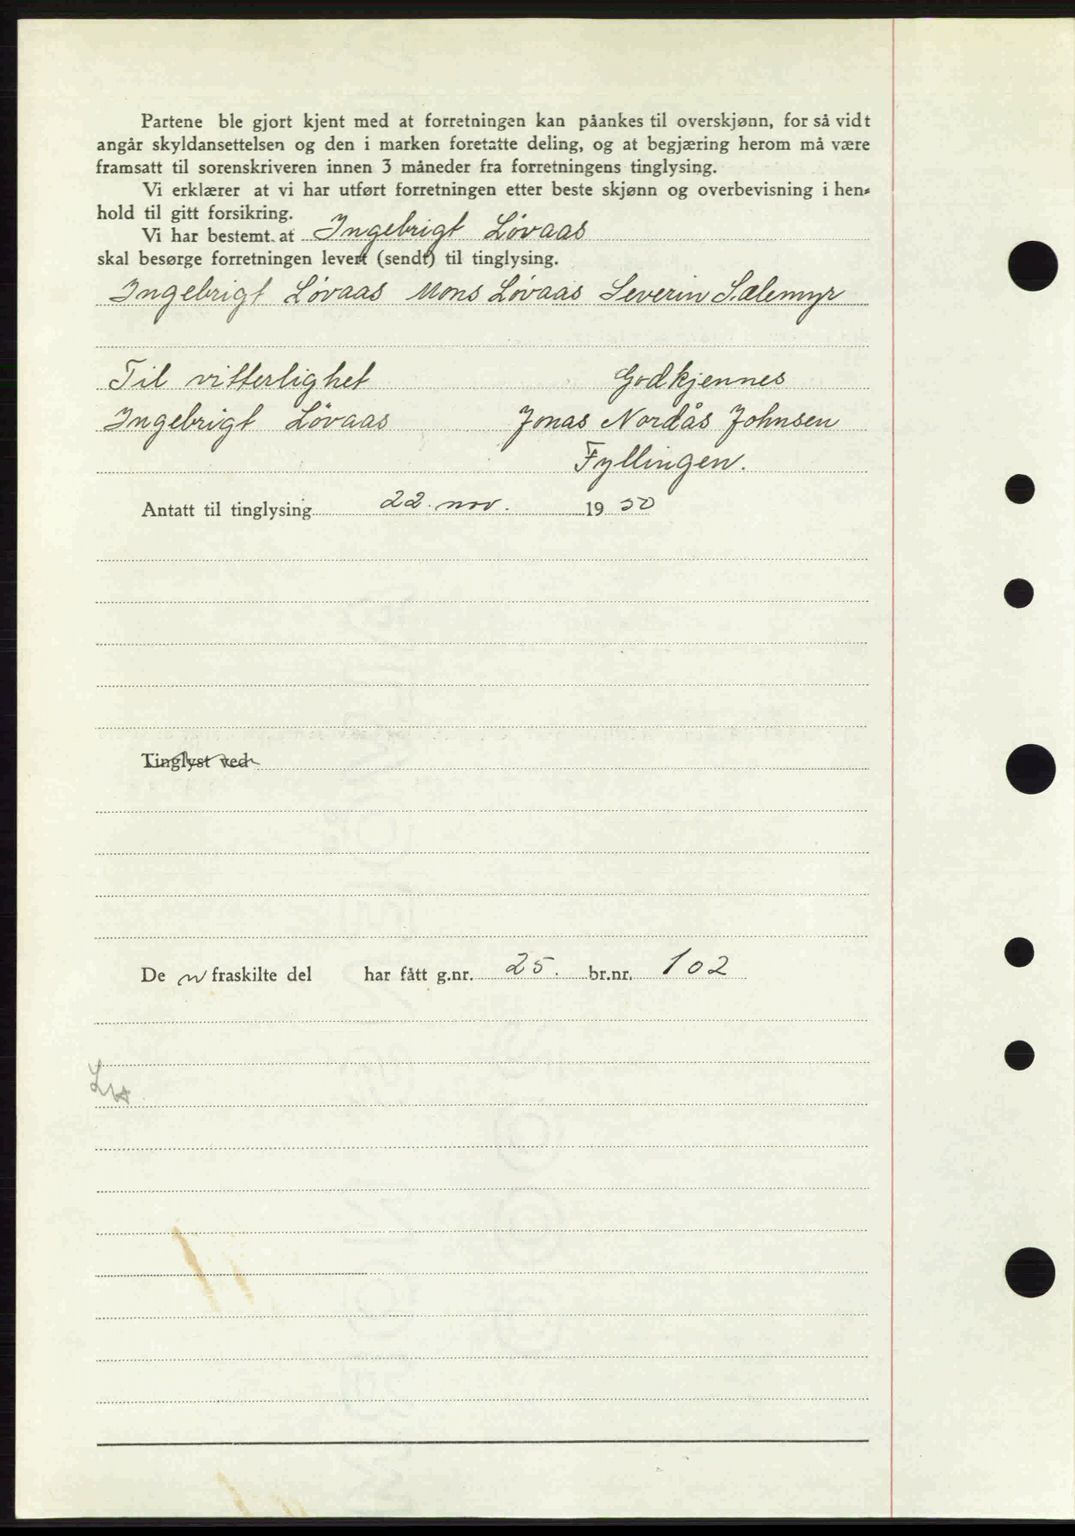 Partene ble gjort kjent med at forretningen kan påankes til overskjønn, for så vidt
angår skyldansettelsen og den i marken foretatte deling, og at begjæring herom må være
framsatt til sorenskriveren innen 3 måneder fra forretningens tinglysing.
Vi erklærer at vi har utført forretningen etter beste skjønn og overbevisning i hen-
hold til gitt forsikring.
Vi har bestemt at Ingebrigt Løvaas
skal besørge forretningen levert (sendt) til tinglysing.
Ingebrigt Løvaas Mons Løvaas Severin Sælemyr
Til vitterlighet Godkjennes
Ingebrigt Løvaas Jonas Nordås Johnsen
Fyllingen.
Antatt til tinglysing 22. nov. 1950
Tinglyst ved
De n fraskilte del har fått g.nr. 25. br.nr. 102